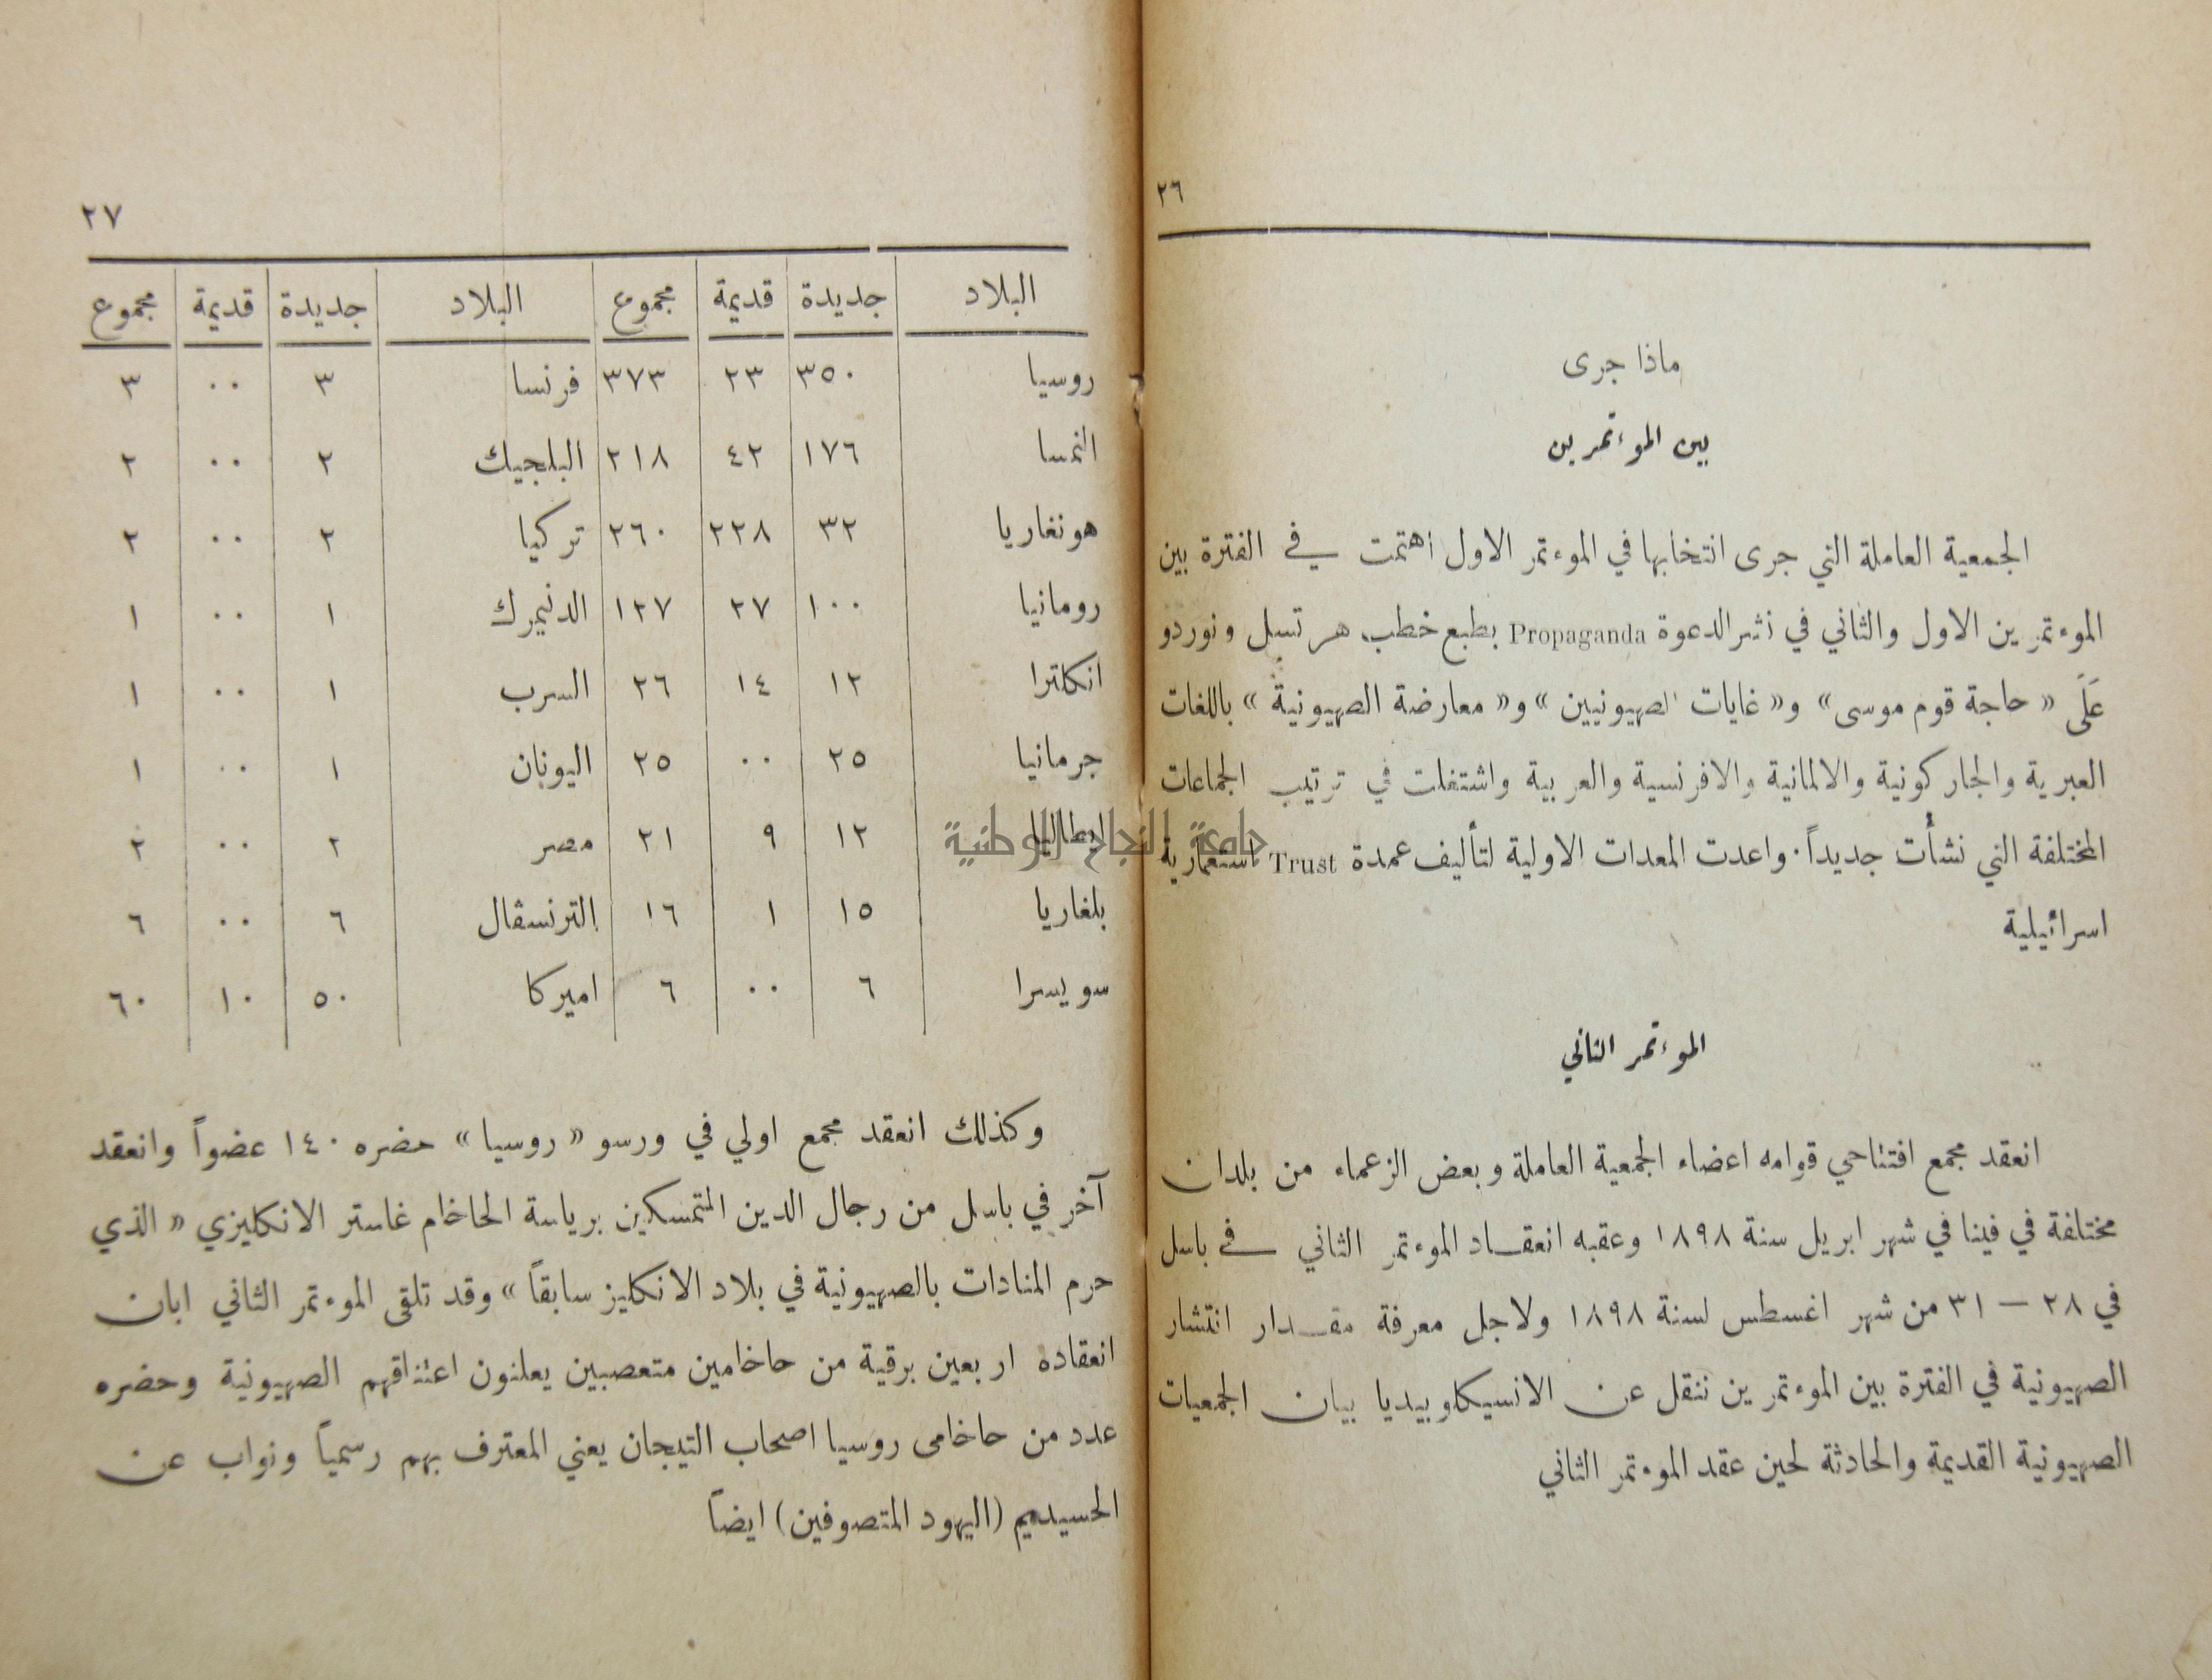 ٢٦
ماذا جرى
بين الموءتمرين
الجمعية العاملة التي جرى انتخابها في الموءتمر الاول اهتمت في الفترة بين
الموءتمرين الاول والثاني في نشر الدعوة Propaganda بطبع خطب هرتسل ونوردو
عَلَى « حاجة قوم موسى » و« غايات الصهيونيين » و« معارضة الصهيونية » باللغات
العبرية والجاركونية والالمانية والافرنسية والعربية واشتغلت في ترتيب الجماعات
المختلفة التي نشأت جديداً. واعدت المعدات الاولية لتأليف عمدة Trust استعمارية
اسرائيلية
الموءتمر الثاني
انعقد مجمع افتتاحي قوامه اعضاء الجمعية العاملة وبعض الزعماء من بلدان
مختلفة في فينا في شهر ابريل سنة ١٨٩٨ وعقبه انعقاد الموءتمر الثاني في باسل
في ٢٨ — ٣١ من شهر اغسطس لسنة ١٨٩٨ ولاجل معرفة مقدار انتشار
الصهيونية في الفترة بين الموءتمرين ننقل عن الانسيكلوبيديا بيان الجمعيات
الصهيونية القديمة والحادثة لحين عقد الموءتمر الثاني
٢٧
البلاد جديدة قديمة مجموع البلاد جديدة قديمة مجموع
روسيا ٣٥٠ ٢٣ ٣٧٣ فرنسا ٣ ٠٠ ٣
النمسا ١٧٦ ٤٢ ٢١٨ البلجيك ٢ ٠٠ ٢
هونغاريا ٣٢ ٢٢٨ ٢٦٠ تركيا ٢ ٠٠ ٢
رومانيا ١٠٠ ٢٧ ١٢٧ الدنيمرك ١ ٠٠ ١
انكلترا ١٢ ١٤ ٢٦ السرب ١ ٠٠ ١
جرمانيا ٢٥ ٠٠ ٢٥ اليونان ١ ٠٠ ١
ايطاليا ١٢ ٩ ٢١ مصر ٢ ٠٠ ٢
بلغاريا ١٥ ١ ١٦ الترنسفال ٦ ٠٠ ٦
سويسرا ٦ ٠٠ ٦ اميركا ٥٠ ١٠ ٦٠
وكذلك انعقد مجمع اولي في ورسو « روسيا » حضره ١٤٠ عضواً وانعقد
آخر في باسل من رجال الدين المتمسكين برياسة الحاخام غاستر الانكليزي « الذي
حرم المنادات بالصهيونية في بلاد الانكليز سابقاً » وقد تلقى الموءتمر الثاني ابان
انعقاده اربعين برقية من حاخامين متعصبين يعلنون اعتناقهم الصهيونية وحضره
عدد من حاخامى روسيا اصحاب التيجان يعني المعترف بهم رسمياً ونواب عن
الحسيديم (اليهود المتصوفين) ايضاً
جامعة النجاح الوطنية